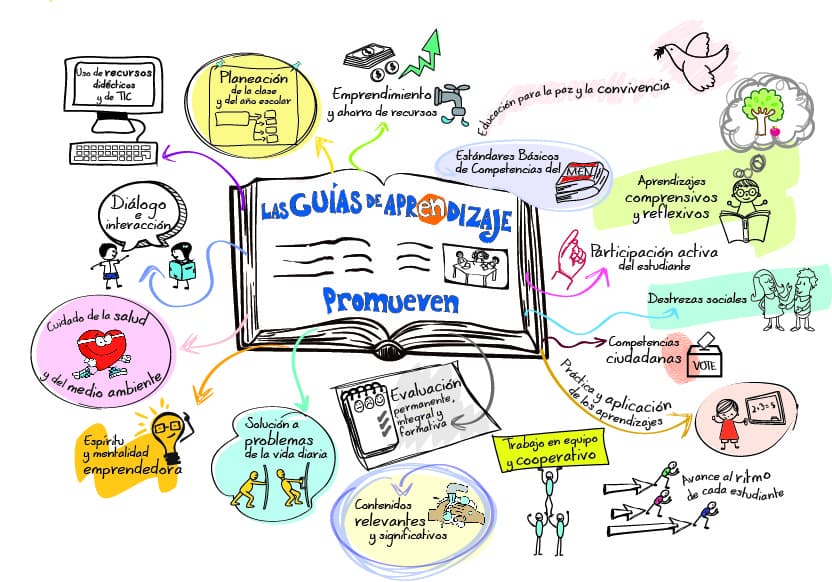 LAS GUÍAS DE APRENDIZAJE
Promueven
Uso de recursos
didécticos
y de TIC
Planeación
de la clase
y del año escolar
Emprendimiento
y ahorro de recursos
Educación para la paz y la convivencia
Estándares Básicos
de Competencias del
MEN
Aprendizajes
comprensivos
y reflexivos
Participación activa
del estudiante
Destrezas sociales
Competencias
ciudadanas
VOTE
Práctica y aplicación
de los aprendizajes
2+3=5
Avance al ritmo
de cada estudiante
Trabajo en equipo
y cooperativo
Evaluación
permanente,
integral y
formativa
Contenidos
relevantes
y significativos
Solución a
problemas
de la vida diaria
Espíritu
y mentalidad
emprendedora
Cuidado de la salud
y del medio ambiente
Diálogo
e
interacción